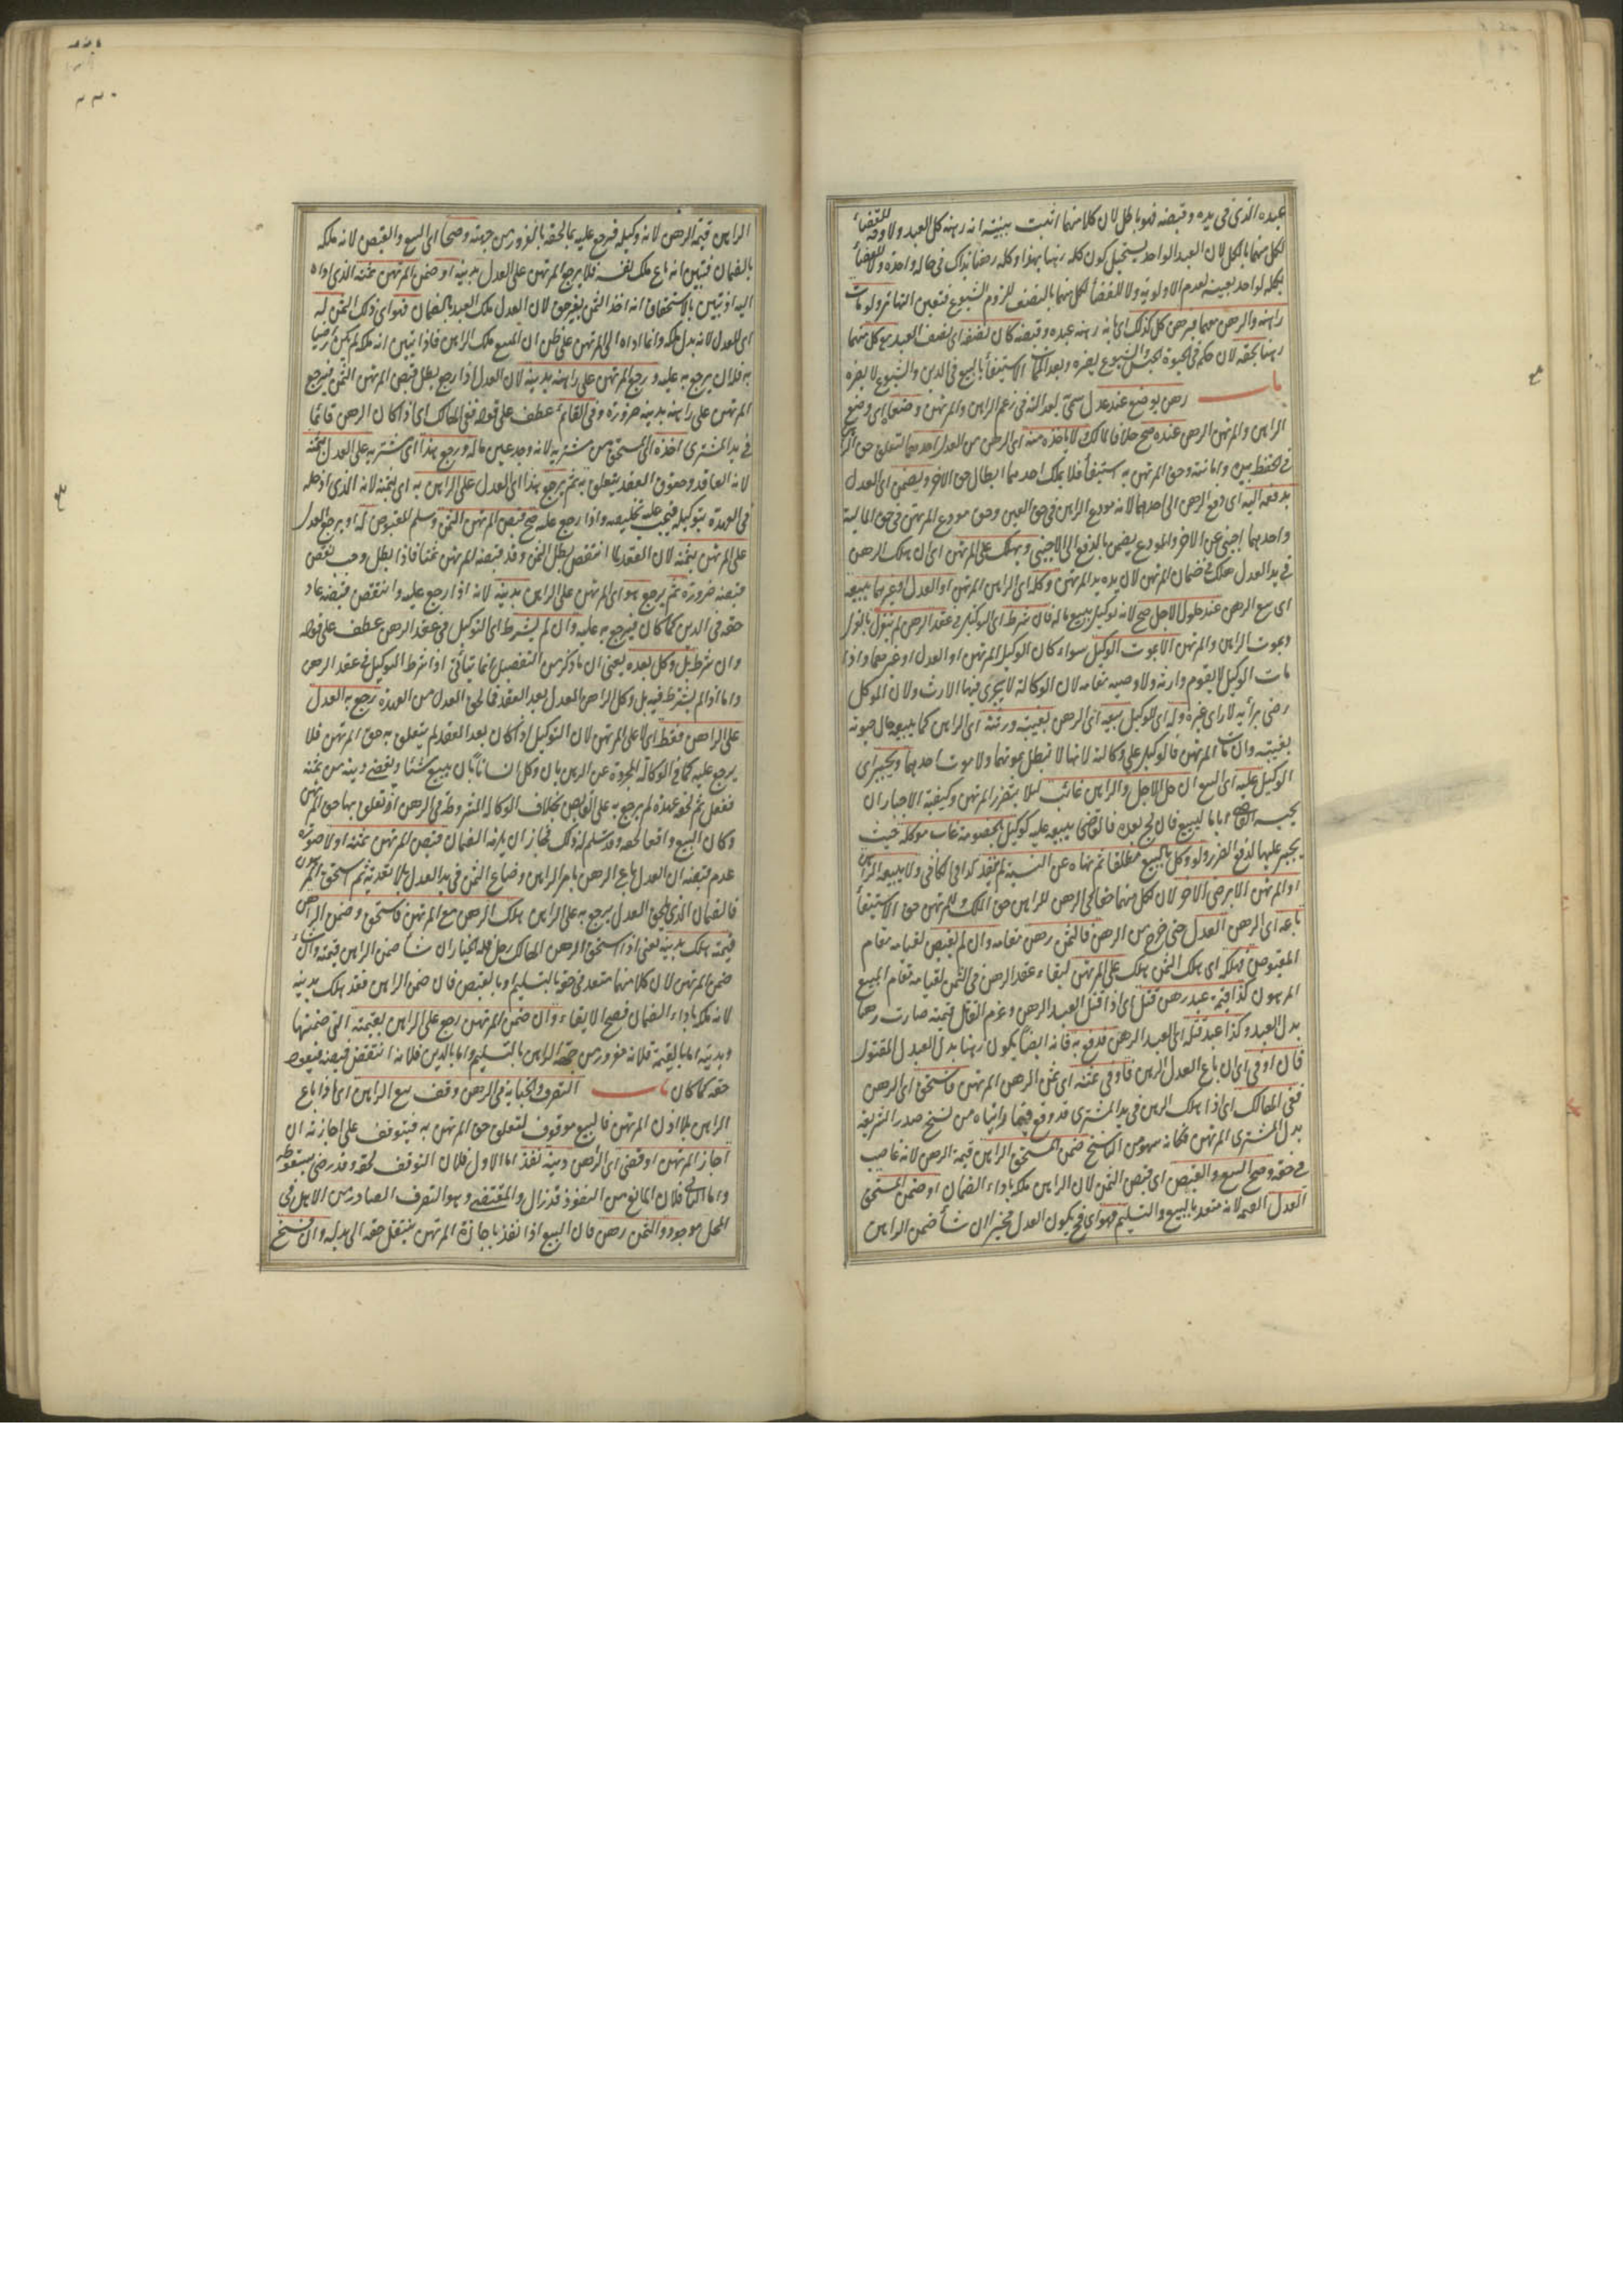 عبده الذى فى يده وقبضه فهو باطل لان كلا منهما اثبت ببينته انه رهنه كل العبد ولا وجه للقضاء
لكل منهما بالكل لان العبد الواحد يستحيل كون كله رهنا بهذا وكله رهنا بذاك فى حالة واحدة ولا للقضاء
بكله لواحد بعينه لعدم الاولوية ولا للقضاء لكل منهما بالنصف للزوم الشيوع فتعين التهاتر ولو مات
راهنه والرهن معهما فبرهن كل كذلك اى انه رهنه عبده وقبضه كان نصفه اى نصف العبد مع كل منهما
رهنا بحقه لان حكمه فى الحيوة الحبس والشيوع يضره وبعد الممات الاستيفاء بالبيع فى الدين والشيوع لا يضره
باب رهن يوضع عند عدل سمى به لعدالته فى زعم الراهن والمرتهن وضعا اى وضع
الراهن والمرتهن الرهن عنده صح خلافا لمالك لا ياخذه منه اى الرهن من العدل احدهما لتعلق حق الراهن
فى الحفظ بيده وامانته وحق المرتهن به استيفاء فلا يملك احدهما ابطال حق الاخر ويضمن اى العدل
بدفعه اليه اى دفع الرهن الى احدهما لانه مودع الراهن فى حق العين وحق مودع المرتهن فى حق المالية
واحدهما اجنبى عن الاخر والمودع يضمن بالدفع الى الاجنبى ويهلك على المرتهن اى ان هلك الرهن
فى يد العدل هلك فى ضمان المرتهن لان يده يد المرتهن وكل اى الراهن المرتهن او العدل او غيرهما ببيعه
اى بيع الرهن عند حلول الاجل صح لانه توكيل ببيع ماله فان شرط اى التوكيل فى عقد الرهن لم ينعزل بالعزل
وبموت الراهن والمرتهن الا بموت الوكيل سواء كان الوكيل المرتهن او العدل او غيرهما واذا
مات الوكيل لا يقوم وارثه ولا وصيه مقامه لان الوكالة لا يجرى فيها الارث ولان الموكل
رضى برأيه لا رأى غيره وله اى للوكيل بيعه اى الرهن بغيبة ورثته اى الراهن كما يبيعه حال حيوته
بغيبته وان مات المرتهن فالوكيل على وكالته لانها لا تبطل بموتهما ولا موت احدهما ويجبر اى
الوكيل عليه اى البيع ان حل الاجل والراهن غائب لئلا يتضرر المرتهن وكيفية الاجبار ان
يحبسه القاضى اياما ليبيع فان لج بعده فالقاضى يبيعه عليه كوكيل بالخصومة غاب موكله حيث
يجبر عليها لدفع الضرر ولو وكل بالبيع مطلقا ثم نهاه عن النسيئة لم يفد كذا فى الكافى ولا يبيعه الراهن
او المرتهن الا برضى الاخر لان لكل منهما حقا فى الرهن للراهن حق الملك وللمرتهن حق الاستيفاء
باعه اى الرهن العدل حتى خرج من الرهن فالثمن رهن مقامه وان لم يقبض لقيامه مقام
المقبوض فهلكه اى هلك الثمن هلك على المرتهن لبقاء عقد الرهن فى الثمن لقيامه مقام المبيع
المرهون كذا قيمة عبد رهن قتل اى اذا قتل العبد الرهن وغرم القاتل قيمته صارت رهنا
بدل العبد وكذا عبد قتله اى العبد الرهن فدفع به فانه ايضا يكون رهنا بدل العبد المقتول
فان اوفى اى ان باع العدل الرهن فاوفى ثمنه اى ثمن الرهن المرتهن فاستحق اى الرهن
ففى الهالك اى اذا هلك الرهن فى يد المشترى قد وقع فيما رايناه من نسخ صدر الشريعة
بدل المشترى المرتهن فكانه سهو من الناسخ ضمن المستحق الراهن قيمة الرهن لانه غاصب
فى حقه وصح البيع والقبض اى قبض الثمن لان الراهن ملكه باداء الضمان او ضمن المستحق
العدل القيمة لانه متعد بالبيع والتسليم فهو اى فح يكون العدل مخيرا ان شاء ضمن الراهن
الراهن قيمة الرهن لانه وكيله فيرجع عليه بما لحقه بالغرور من جهته وصحا اى البيع والقبض لانه ملكه
بالضمان فتبين انه باع ملك نفسه فلا يرجع المرتهن على العدل بدينه او ضمن المرتهن ثمنه الذى اداه
اليه اذ تبين بالاستحقاق انه اخذ الثمن بغير حق لان العدل ملك العبد بالضمان فهو اى ذلك الثمن له
اى للعدل لانه بدل ملكه وانما اداه الى المرتهن على ظن ان المبيع ملك الراهن فاذا تبين انه ملكه لم يكن راضيا
به فله ان يرجع به عليه ورجع المرتهن على راهنه بدينه لان العدل اذا رجع بطل قبض المرتهن الثمن فيرجع
المرتهن على راهنه بدينه ضرورة وفى القائم عطف على قوله ففى الهالك اى اذا كان الرهن قائما
فى يد المشترى اخذه اى المستحق من مشتريه لانه وجد عين ماله ورجع هذا اى مشتريه على العدل بثمنه
لانه العاقد وحقوق العقد يتعلق به ثم يرجع هذا اى العدل على الراهن به اى بثمنه لانه الذى ادخله
فى العهدة بتوكيله فيجب عليه تخليصه واذا رجع عليه صح قبض المرتهن الثمن وسلم المقبوض له او يرجع العدل
على المرتهن بثمنه لان العقد لما انتقض بطل الثمن وقد قبضه المرتهن ثمنا فاذا بطل وجب نقض
قبضه ضرورة ثم يرجع هو اى المرتهن على الراهن بدينه لانه اذا رجع عليه وانتقض قبضه عاد
حقه فى الدين كما كان فيرجع به عليه وان لم يشترط اى التوكيل فى عقد الرهن عطف على قوله
وان شرط بل وكل بعده يعنى ان ما ذكر من التفصيل انما يتأتى اذا شرط التوكيل فى عقد الرهن
واما اذا لم يشترط فيه بل وكل الراهن العدل بعد العقد فما لحق العدل من العهدة رجع به العدل
على الراهن فقط اى لا على المرتهن لان التوكيل اذا كان بعد العقد لم يتعلق به حق المرتهن فلا
يرجع عليه كما فى الوكالة المجردة عن الرهن بان وكل انسانا بان يبيع شيئا ويقضى دينه من ثمنه
ففعل ثم لحقه عهدة لم يرجع به على القابض بخلاف الوكالة المشروطة فى الرهن اذ تعلق بها حق المرتهن
وكان البيع واقعا لحقه وقد سلم له ذلك فجاز ان يلزمه الضمان قبض المرتهن ثمنه او لا صورة
عدم قبضه ان العدل باع الرهن بامر الراهن وضاع الثمن فى يد العدل بلا تعديه ثم استحق المرهون
فالضمان الذى يلحق العدل يرجع به على الراهن هلك الرهن مع المرتهن فاستحق وضمن الراهن
قيمته هلك بدينه يعنى اذا استحق الرهن الهالك رجل فله الخيار ان شاء ضمن الراهن قيمته وان شاء
ضمن المرتهن لان كلا منهما متعد فى حقه بالتسليم او بالقبض فان ضمن الراهن فقد هلك بدينه
لانه ملكه باداء الضمان فصح الايفاء وان ضمن المرتهن رجع على الراهن بقيمته التى ضمنها
وبدينه اما بالقيمة فلانه مغرور من جهة الراهن بالتسليم واما بالدين فلانه انتقض قبضه فيعود
حقه كما كان باب التصرف والجناية فى الرهن وقف بيع الراهن اى اذا باع
الراهن بلا اذن المرتهن فالبيع موقوف لتعلق حق المرتهن به فيتوقف على اجازته ان
اجاز المرتهن او قضى اى الراهن دينه نفذ اما الاول فلان التوقف لحقه وقد رضى بسقوطه
واما الثانى فلان المانع من النفوذ قد زال والمقتضى وهو التصرف الصادر من الاهل فى
المحل موجود والثمن رهن فان البيع اذا نفذ باجازة المرتهن ينتقل حقه الى بدله وان فسخ